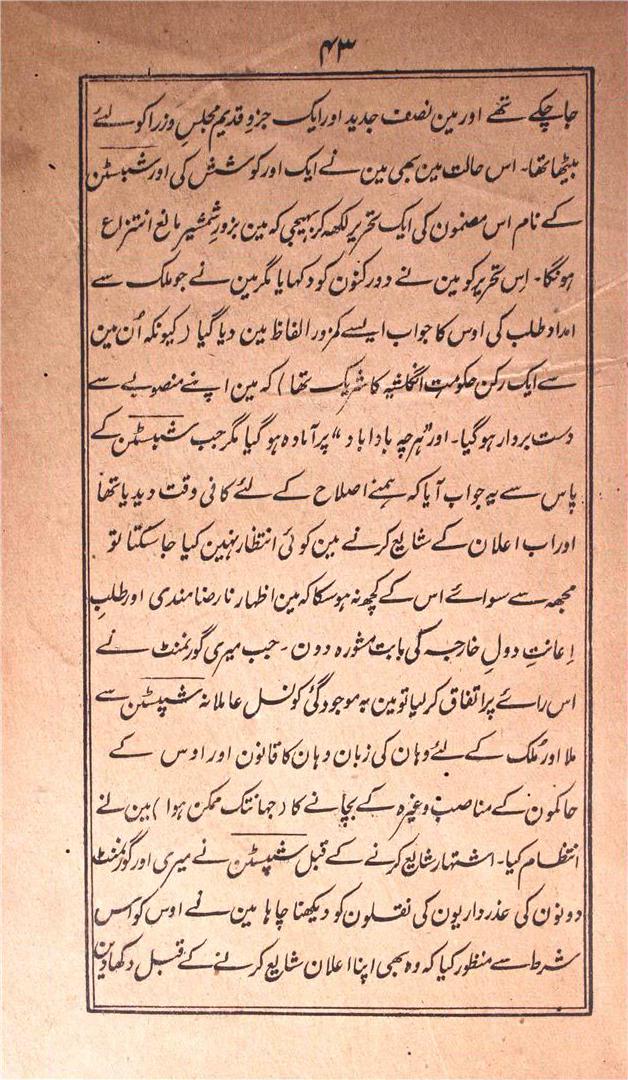 ۴۳
جا چکے تھے اور مین نصف جدید اور ایک جزو قدیم مجلس وزرا کو لئے
بیٹھا تھا۔ اس حالت مین بھی مین نے ایک اور کوشش کی اور شبسٹن
کے نام اس مضمون کی ایک تحریر لکھہ کر بہیجی کہ مین بزور شمشیر مانع انتزاع
ہونگا۔ اِس تحریر کو مین نے دو رکنون کو دکہایا مگر مین نے جو ملک سے
امداد طلب کی اوس کا جواب ایسے کمزور الفاظ مین دیا گیا (کیونکہ اُن مین
سے ایک رکن حکومت انگلشیہ کا شریک تھا) کہ مین اپنے منصوبے سے
دست بردار ہو گیا۔ اور "ہرچہ باداباد" پر آمادہ ہو گیا مگر جب شبسٹن کے
پاس سے یہ جواب آیا کہ ہمنے اصلاح کے لئے کافی وقت دیدیا تھا
اور اب اعلان کے شایع کرنے مین کوئی انتظار نہین کیا جا سکتا تو
مجھہ سے سوائے اس کے کچھہ نہ ہو سکا کہ مین اظہار نارضامندی اور طلبِ
اِعانتِ دولِ خارجہ کی بابت مشورہ دون۔ جب میری گورنمنٹ نے
اس رائے پر اتفاق کر لیا تو مین بہ موجودگی کونسل عاملانہ شپسٹن سے
ملا اور مُلک کے لئے وہان کی زبان وہان کا قانون اور اوس کے
حاکمون کے مناصب وغیرہ کے بچانے کا (جہانتک ممکن ہوا) مین نے
انتظام کیا۔ اشتہار شایع کرنے کے قبل شپسٹن نے میری اور گورنمنٹ
دونون کی عذرداریون کی نقلون کو دیکھنا چاہا مین نے اوس کو اس
شرط سے منظور کیا کہ وہ بھی اپنا اعلان شایع کرنے کے قبل دکھا دین